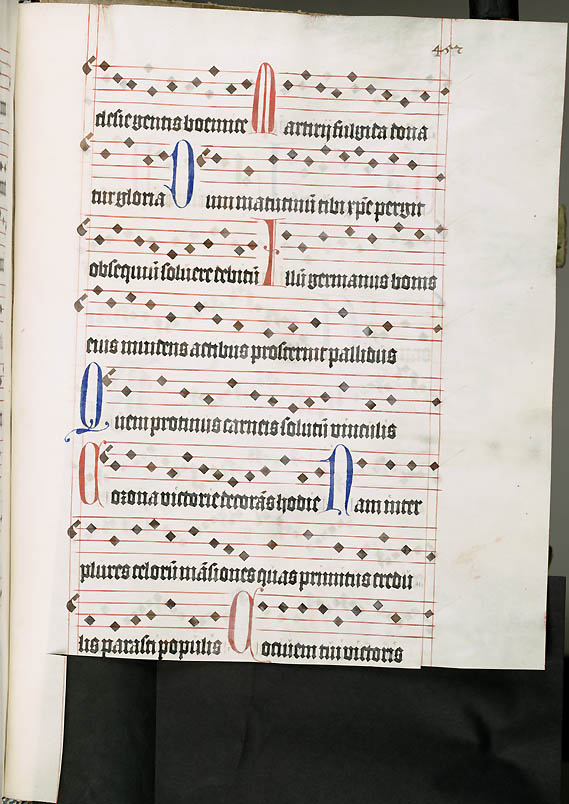 452
clesie gentis vocente Martirij fulgida dona
tur gloria Dum matutinū tibi xp̄e pergit
obsequiū soluere debitū Illū germanus bonis
eius inuidens actibus prosternit pallidus
Quem protinus carneis solutū vinculis
Corona victorie decorās hodie Nam inter
plures celorū māsiones quas primitus credu
lis parasti populis Coctuem tui victoris